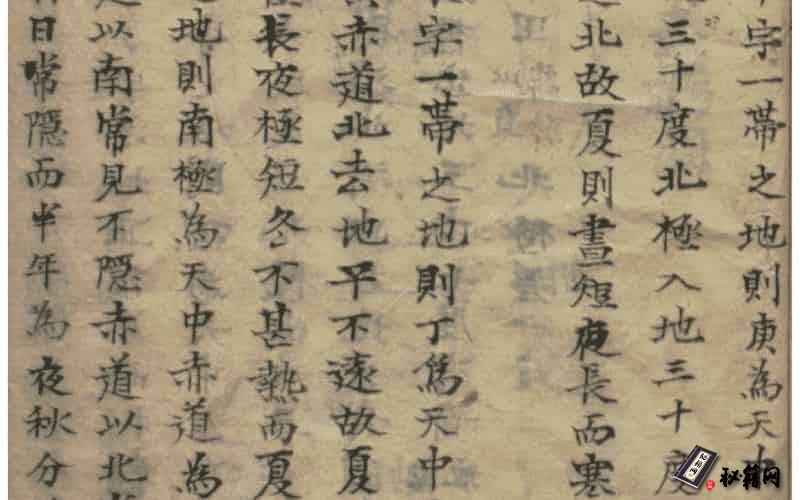 字一帶之地則庚為天中
三十度北極入地三十度
北故夏則晝短夜長而寒
字一帶之地則丁為天中
赤道北去地平不遠故夏
長夜極短冬不甚熱而夏
地則南極為天中赤道為
以南常見不隱赤道以北
日常隱而半年為夜秋分
秘籍网